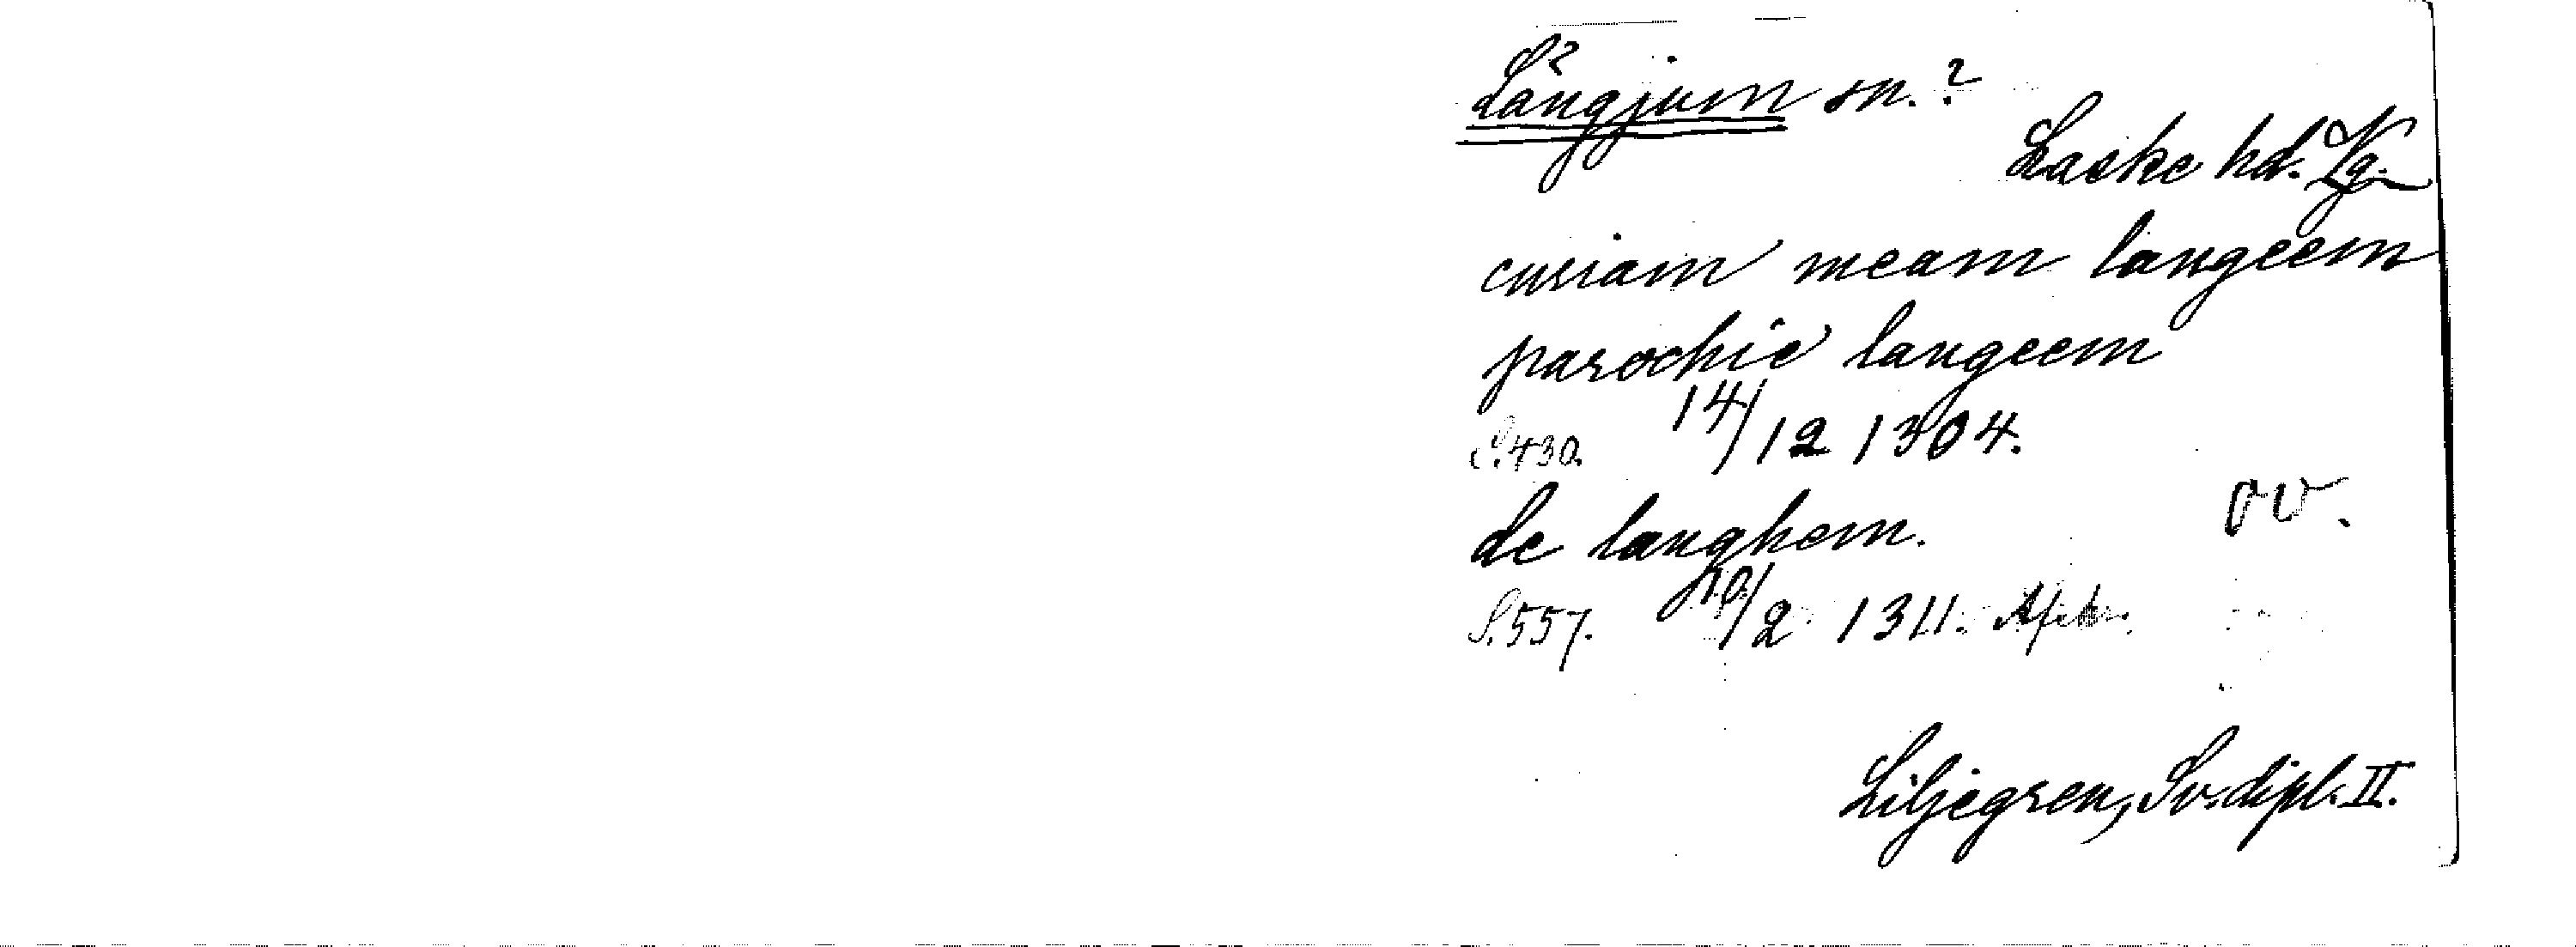 Långjum sn.?
Laske hd. Vg.
curiam meam langeem
parochie langeem
S. 430. 14/12 1304.
OV.
de langhem.
S. 557. 10/2 1311.
Liljegren, Sv. dipl. II.